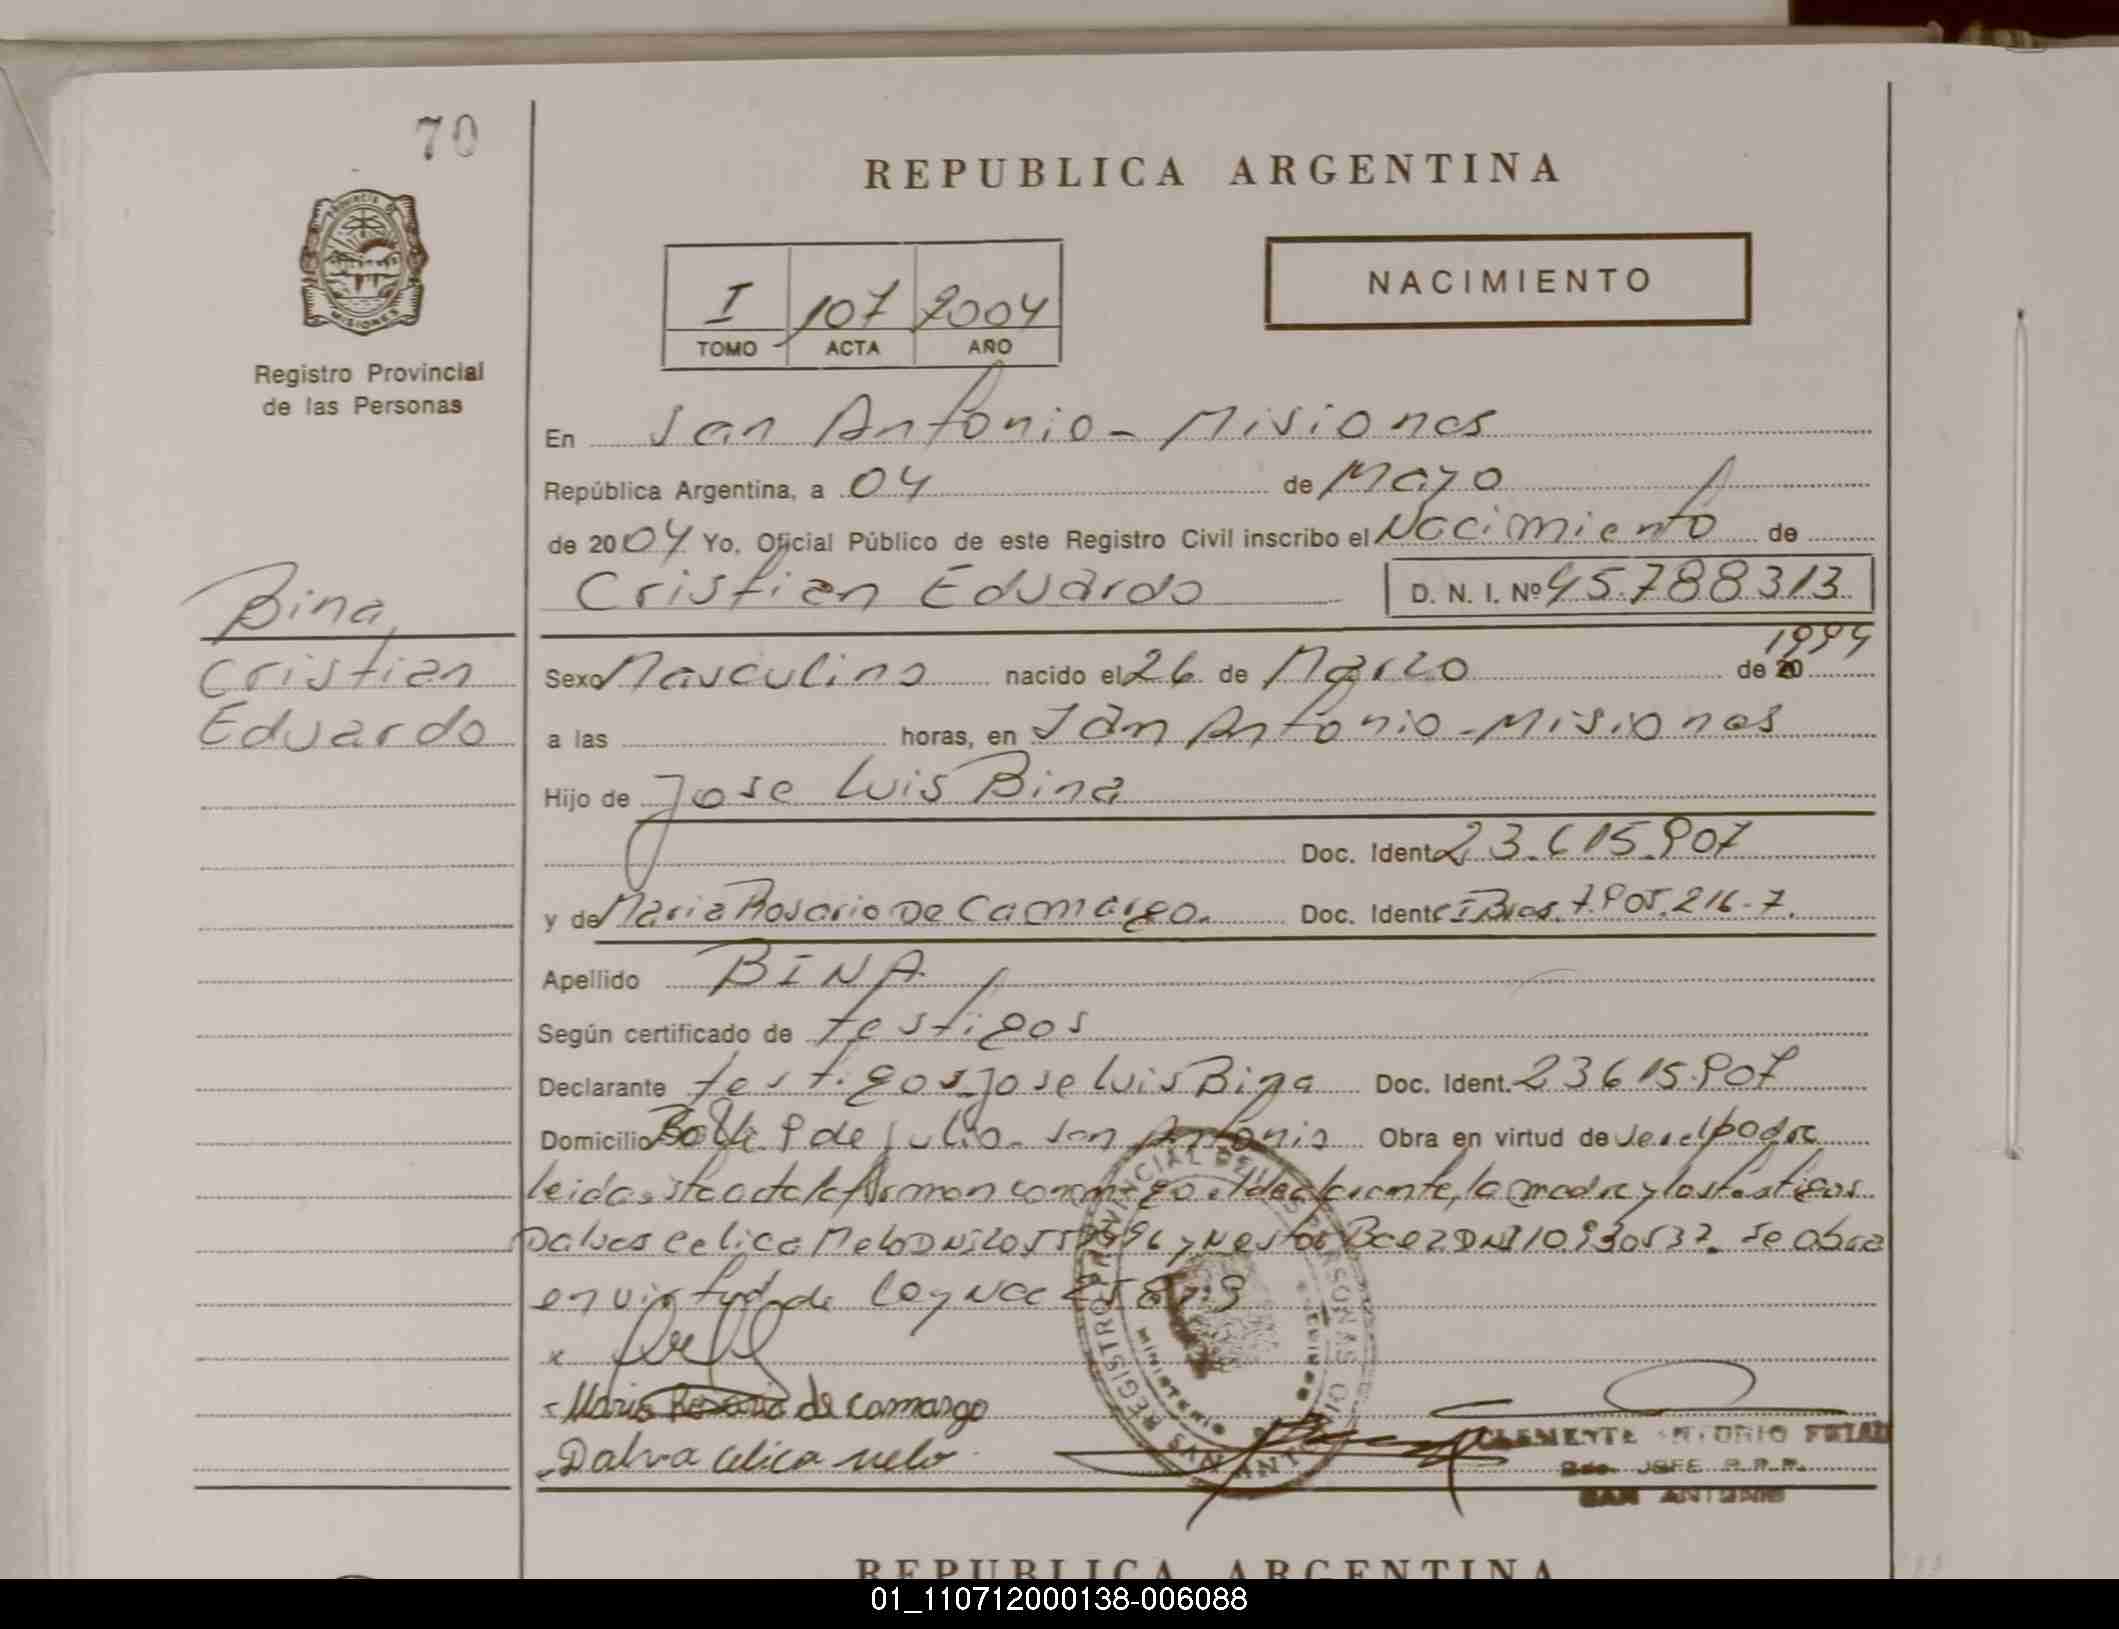 70
REPUBLICA ARGENTINA
PROVINCIA DE
MISIONES
Registro Provincial
de las Personas
I 107 2004
TOMO ACTA AÑO
NACIMIENTO
En San Antonio - Misiones
República Argentina, a 04 de Mayo
de 2004 Yo, Oficial Público de este Registro Civil inscribo el Nacimiento de
Cristian Eduardo D. N. I. Nº 45.788313
Bina,
Cristian
Eduardo
Sexo Masculino nacido el 26 de Marzo de 20 1994
a las horas, en San Antonio - Misiones
Hijo de Jose Luis Bina
Doc. Ident. 23.615.907
y de Maria Rosario De Camargo. Doc. Ident. CI Bras. 7.905.216-7.
Apellido BINA
Según certificado de testigos
Declarante testigos - Jose Luis Bina Doc. Ident. 23615.907
Domicilio 9 de Julio - San Antonio Obra en virtud de ser el padre
leida esta acta la firman conmigo el declarante, la madre y los testigos
Dalves Celica Melo DNI y Nestor Baez DNI 10.930537. Se obra
en virtud de Ley Nac
x
- Maria Rosario de Camargo
- Dalva Celica Melo
REGISTRO PROVINCIAL DE LAS PERSONAS
MINISTERIO
SAN ANTONIO
CLEMENTE ANTONIO
JEFE R.P.P.
SAN ANTONIO
REPUBLICA ARGENTINA
01_110712000138-006088